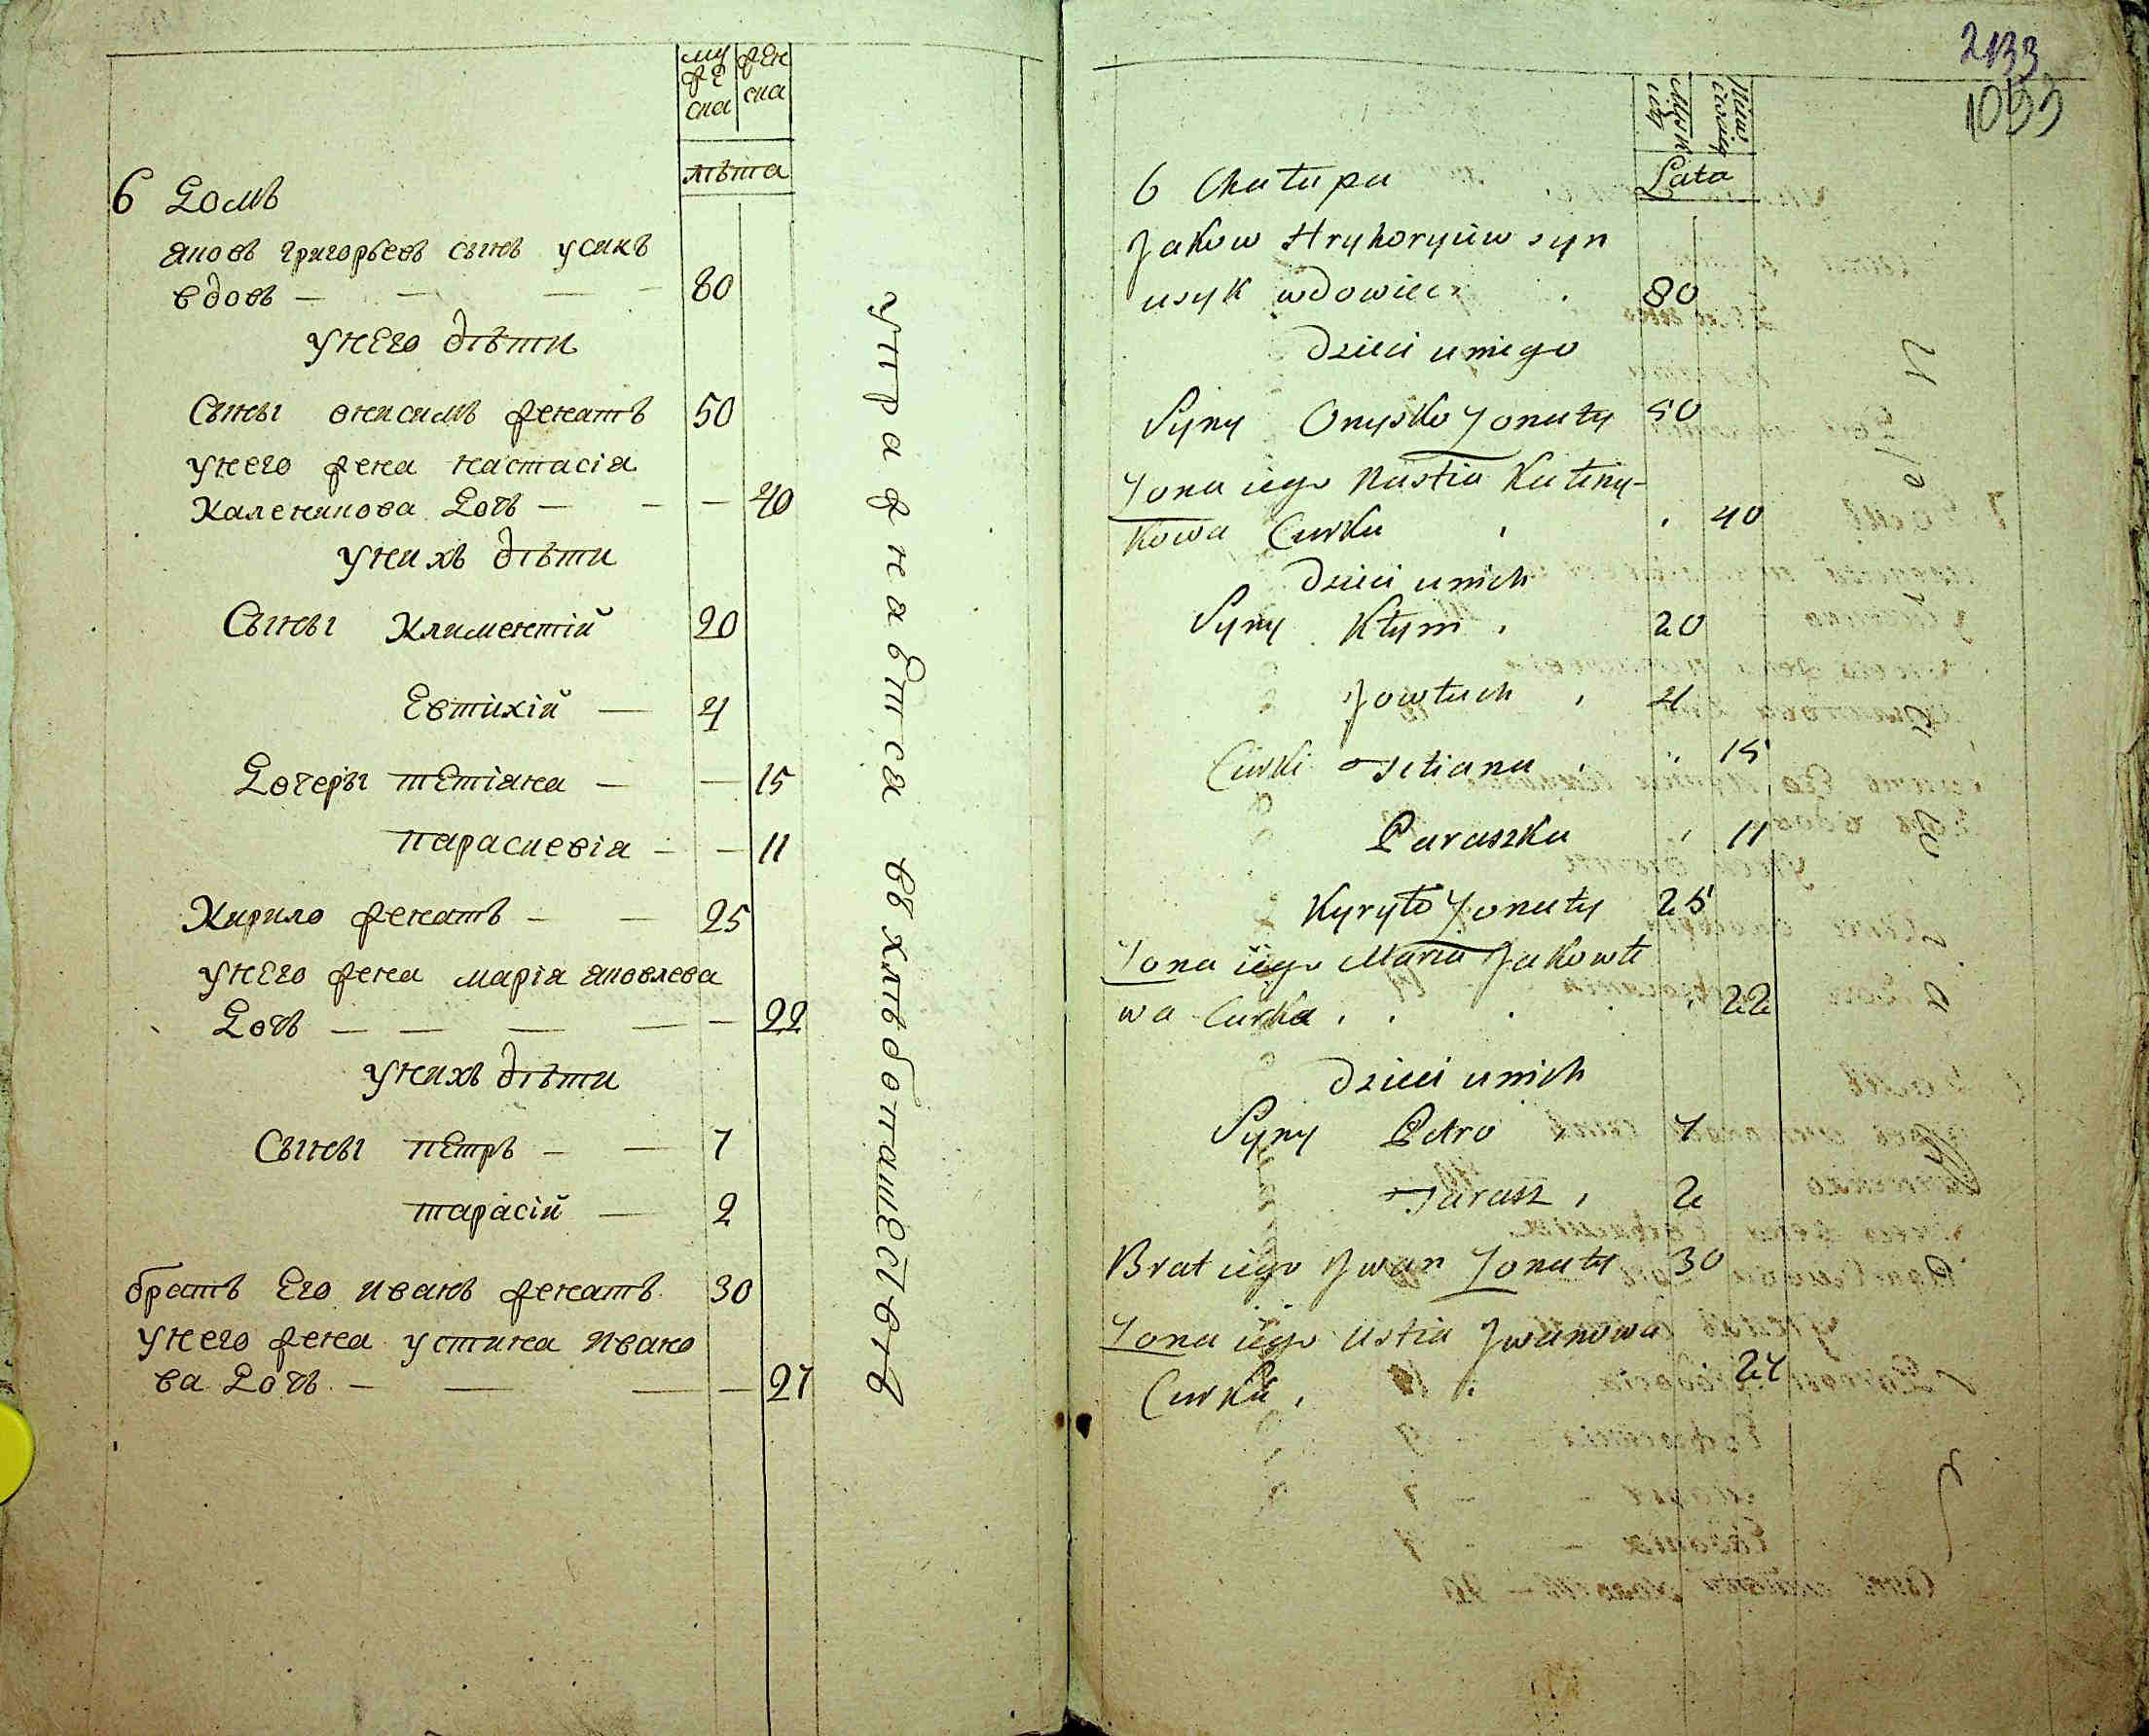 муже
ска
жен
ска
лѣта
6 Домъ
яковъ григорьевъ сынъ усикъ
вдовъ — — — — 80
у него дѣти
Сыны онисимъ женатъ 50
у него жена настасія
Каленикова Дочь — — — 40
у нихъ дѣти
Сыны Климентій 20
Евтихій — 4
Дочеры тетіана — — 15
параскевія — — 11
Кирило женатъ — — 25
у него жена марія яковлева
Дочь — — — — — 22
у нихъ дѣти
Сыны петръ — — 7
тарасій — 2
братъ его иванъ женатъ 30
у него жена устина ивано
ва Дочь — — — — 27
упражнаются въ хлѣбопашествѣ
2133
1033
Lata
6 Chałupa
Jakow Hryhoryiów syn
usyk wdowiec 80
Dzieci u niego
Syny Onysko Żonaty 50
Żona iego Nastia Kaliny-
kowa Curka 40
Dzieci u nich
Syny Kłym 20
Jowtuch 4
Curki Tetiana 15
Paraszka 11
Kyryło Żonaty 25
Żona iego Maria Jakowle
wa Curka 22
Dzieci u nich
Syny Petro 7
Tarasz 2
Brat iego Jwan Żonaty 30
Żona iego Ustia Jwanowa
Curka 27